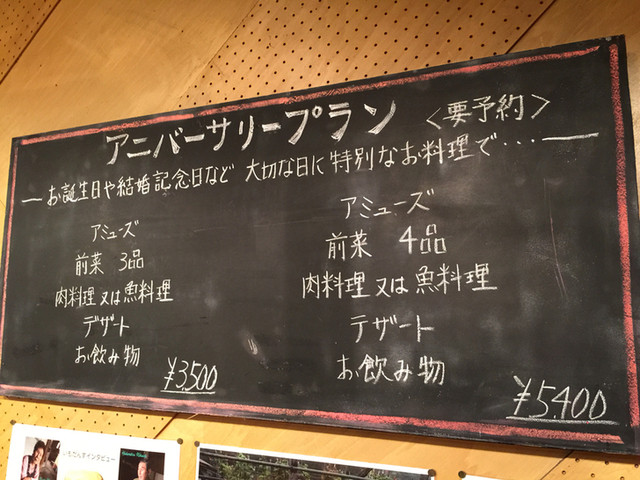 アニバーサリープラン 〈要予約〉
― お誕生日や結婚記念日など 大切な日に特別なお料理で・・・ ―
アミューズ
前菜 3品
肉料理 又は魚料理
デザート
お飲み物
¥3,500
アミューズ
前菜 4品
肉料理 又は魚料理
テザート
お飲み物
¥5,400